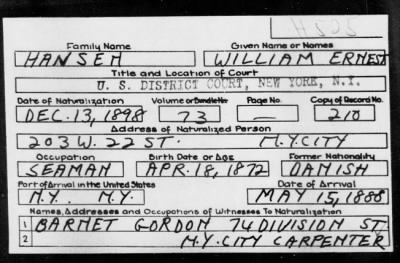 H525
Family Name Given Name or Names
HANSEN WILLIAM ERNEST
Title and Location of Court
U. S. DISTRICT COURT, NEW YORK, N.Y.
Date of Naturalization Volume or Bundle No. Page No. Copy of Record No.
DEC. 13, 1898 73 — 210
Address of Naturalized Person
203 W. 22 ST. N.Y. CITY
Occupation Birth Date or Age Former Nationality
SEAMAN APR. 18, 1872 DANISH
Port of Arrival in the United States Date of Arrival
N.Y. N.Y. MAY 15, 1888
Names, Addresses and Occupations of Witnesses To Naturalization
1 BARNET GORDON 74 DIVISION ST.
2 N.Y. CITY CARPENTER